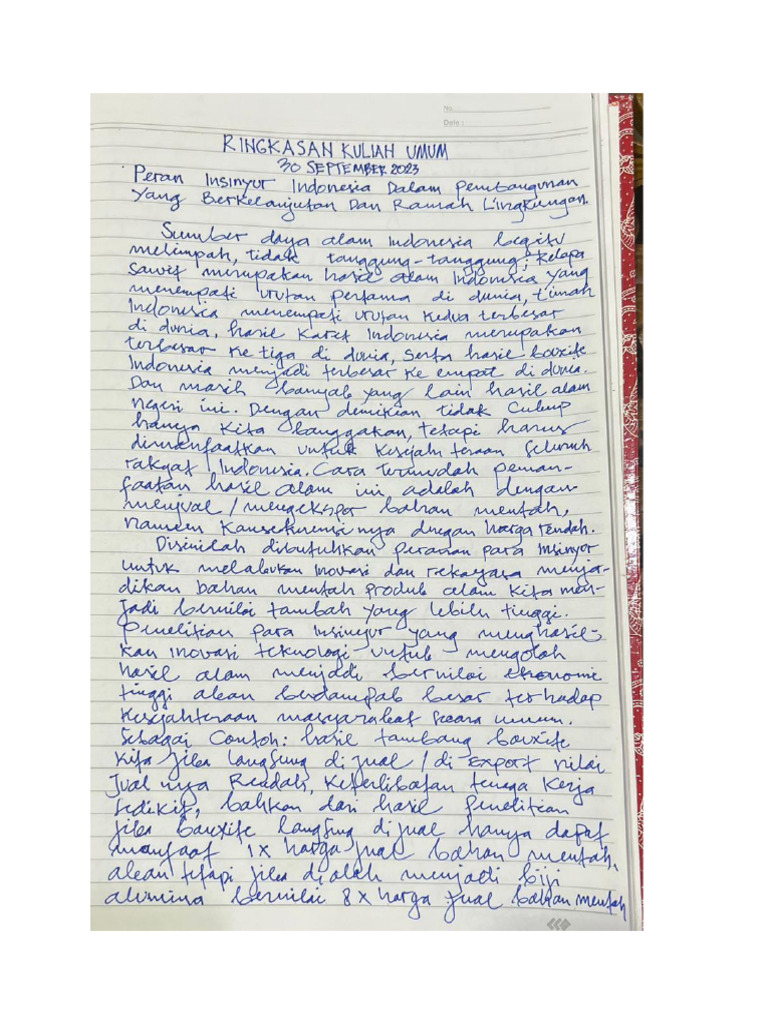 No.
Date :
RINGKASAN KULIAH UMUM
30 SEPTEMBER 2023
Peran Insinyur Indonesia Dalam Pembangunan
Yang Berkelanjutan Dan Ramah Lingkungan.
Sumber daya alam Indonesia begitu
melimpah, tidak tanggung-tanggung; kelapa
sawit merupakan hasil alam Indonesia yang
menempati urutan pertama di dunia, timah
Indonesia menempati urutan kedua terbesar
di dunia, hasil karet Indonesia merupakan
terbesar ke tiga di dunia, serta hasil bouxite
Indonesia menjadi terbesar ke empat di dunia.
Dan masih banyak yang lain hasil alam
negeri ini. Dengan demikian tidak cukup
hanya kita banggakan, tetapi harus
dimanfaatkan untuk kesejahteraan seluruh
rakyat Indonesia. Cara termudah peman-
faatan hasil alam ini adalah dengan
menjual / mengekspor bahan mentah,
namun konsekuensinya dengan harga rendah.
Disinilah dibutuhkan peranan para insinyur
untuk melakukan inovasi dan rekayasa menja-
dikan bahan mentah produk alam kita men-
jadi bernilai tambah yang lebih tinggi.
Penelitian para insinyur yang menghasil-
kan inovasi teknologi untuk mengolah
hasil alam menjadi bernilai ekonomi
tinggi akan berdampak besar terhadap
kesejahteraan masyarakat secara umum.
Sebagai Contoh: hasil tambang bouxite
kita jika langsung di jual / di-export nilai
jual nya Rendah, keterlibatan tenaga kerja
sedikit, bahkan dari hasil penelitian
jika bouxite langsung dijual hanya dapat
manfaat 1x harga jual bahan mentah,
akan tetapi jika diolah menjadi biji
alumina bernilai 8x harga jual bahan mentah